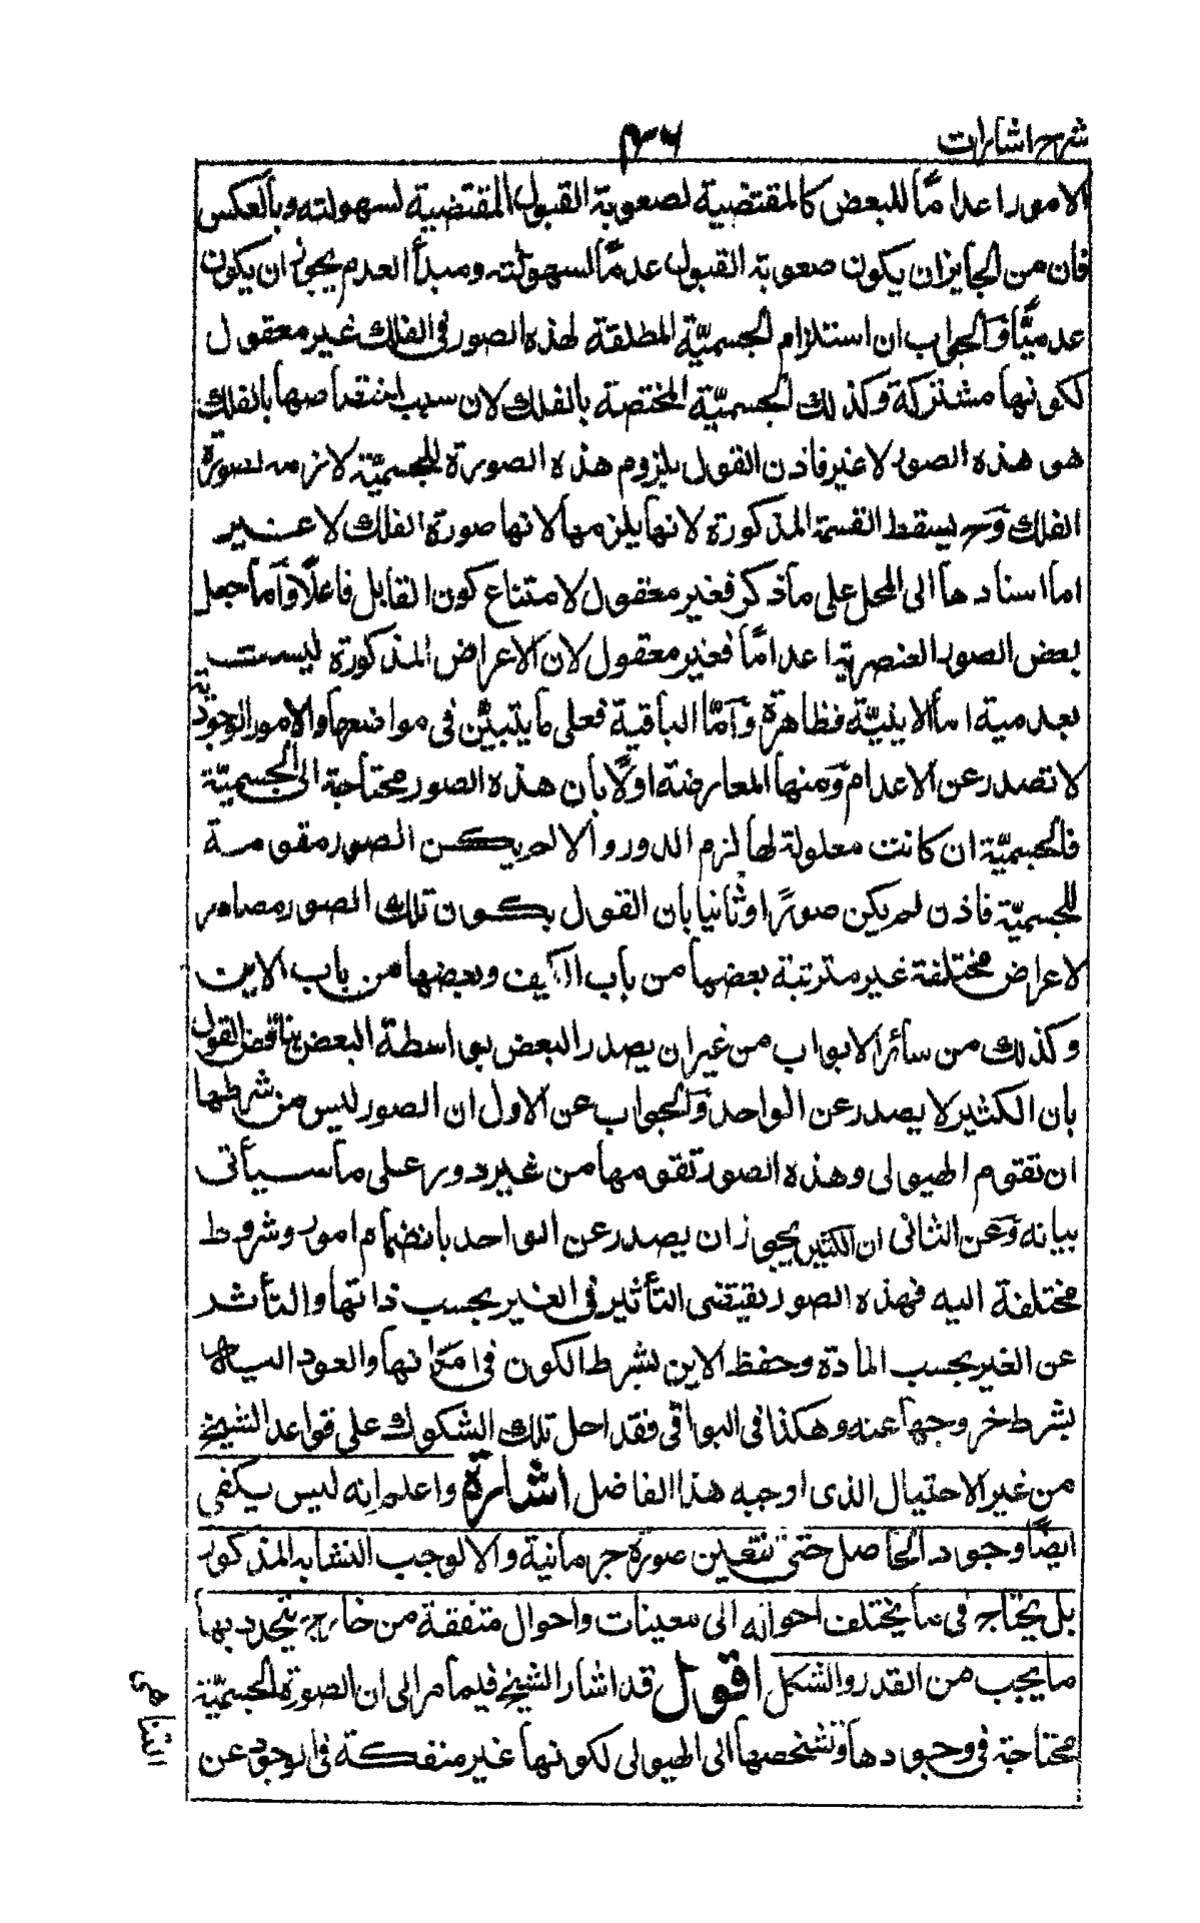 شرح اشارات
٣٦
الامور اعداما للبعض كالمقتضية لصعوبة القبول المقتضية لسهولته وبالعكس
فان من الجايز ان يكون صعوبة القبول عدما لسهولته ومبدأ العدم يجوز ان يكون
عدميًّا وَالجواب ان استلزام الجسميّة المطلقة لهذه الصور فى الفلك غير معقول
لكونها مشتركة وكذلك الجسميّة المختصة بالفلك لان سبب اختصاصها بالفلك
هو هذه الصور لا غير فاذن القول بلزوم هذه الصورة للجسميّة لازمه لصورة
الفلك وَح يسقط القسمة المذكورة لانها يلزمها لانها صورة الفلك لا غير
اما اسنادها الى المحل على ما ذكر فغير معقول لامتناع كون القابل فاعلًا وَأما جعل
بعض الصور العنصرية اعداما فغير معقول لان الاعراض المذكورة ليست
بعدمية اما الاينيّة فظاهرة وَأمّا الباقية فعلى ما يتبيّن فى مواضعها والامور الوجودية
لا تصدر عن الاعدام وَمنها المعارضة اولًا بأن هذه الصور محتاجة الى الجسميّة
فالجسميّة ان كانت معلولة لها لزم الدور والا لم يكن الصور مقومة
للجسميّة فاذن لم يكن صورًا وثانيا بأن القول بكون تلك الصور مصادر
لاعراض مختلفة غير مترتبة بعضها من باب الكيف وبعضها من باب الاين
وكذلك من سائر الابواب من غير ان يصدر البعض بواسطة البعض يناقض القول
بأن الكثير لا يصدر عن الواحد وَالجواب عن الاول ان الصور ليس من شرطها
ان تقوم الهيولى وهذه الصور تقومها من غير دور على ما سيأتى
بيانه وَعن الثانى ان الكثير يجوز ان يصدر عن الواحد بانضمام امور وشروط
مختلفة اليه فهذه الصور يقتضى التأثير فى الغير بحسب ذاتها والتأثر
عن الغير بحسب المادة وحفظ الاين بشرط الكون فى امكانها والعود اليها
بشرط خروجها عنه وهكذا فى البواقى فقد احل تلك الشكوك على قواعد الشيخ
من غير الاحتيال الذى اوجبه هذا الفاضل اشارة واعلم انه ليس يكفى
ايضًا وجود الحاصل حتى تتعين صورة جرمانية والا لوجب التشابه المذكور
بل يحتاج فى ما يختلف احواله الى معينات واحوال متفقة من خارج يتحدد بها
ما يجب من القدر والشكل اقول قد اشار الشيخ فيما مر الى ان الصورة الجسميّة
محتاجة فى وجودها وتشخصها الى الهيولى لكونها غير منفكة فى الوجود عن
التناهى